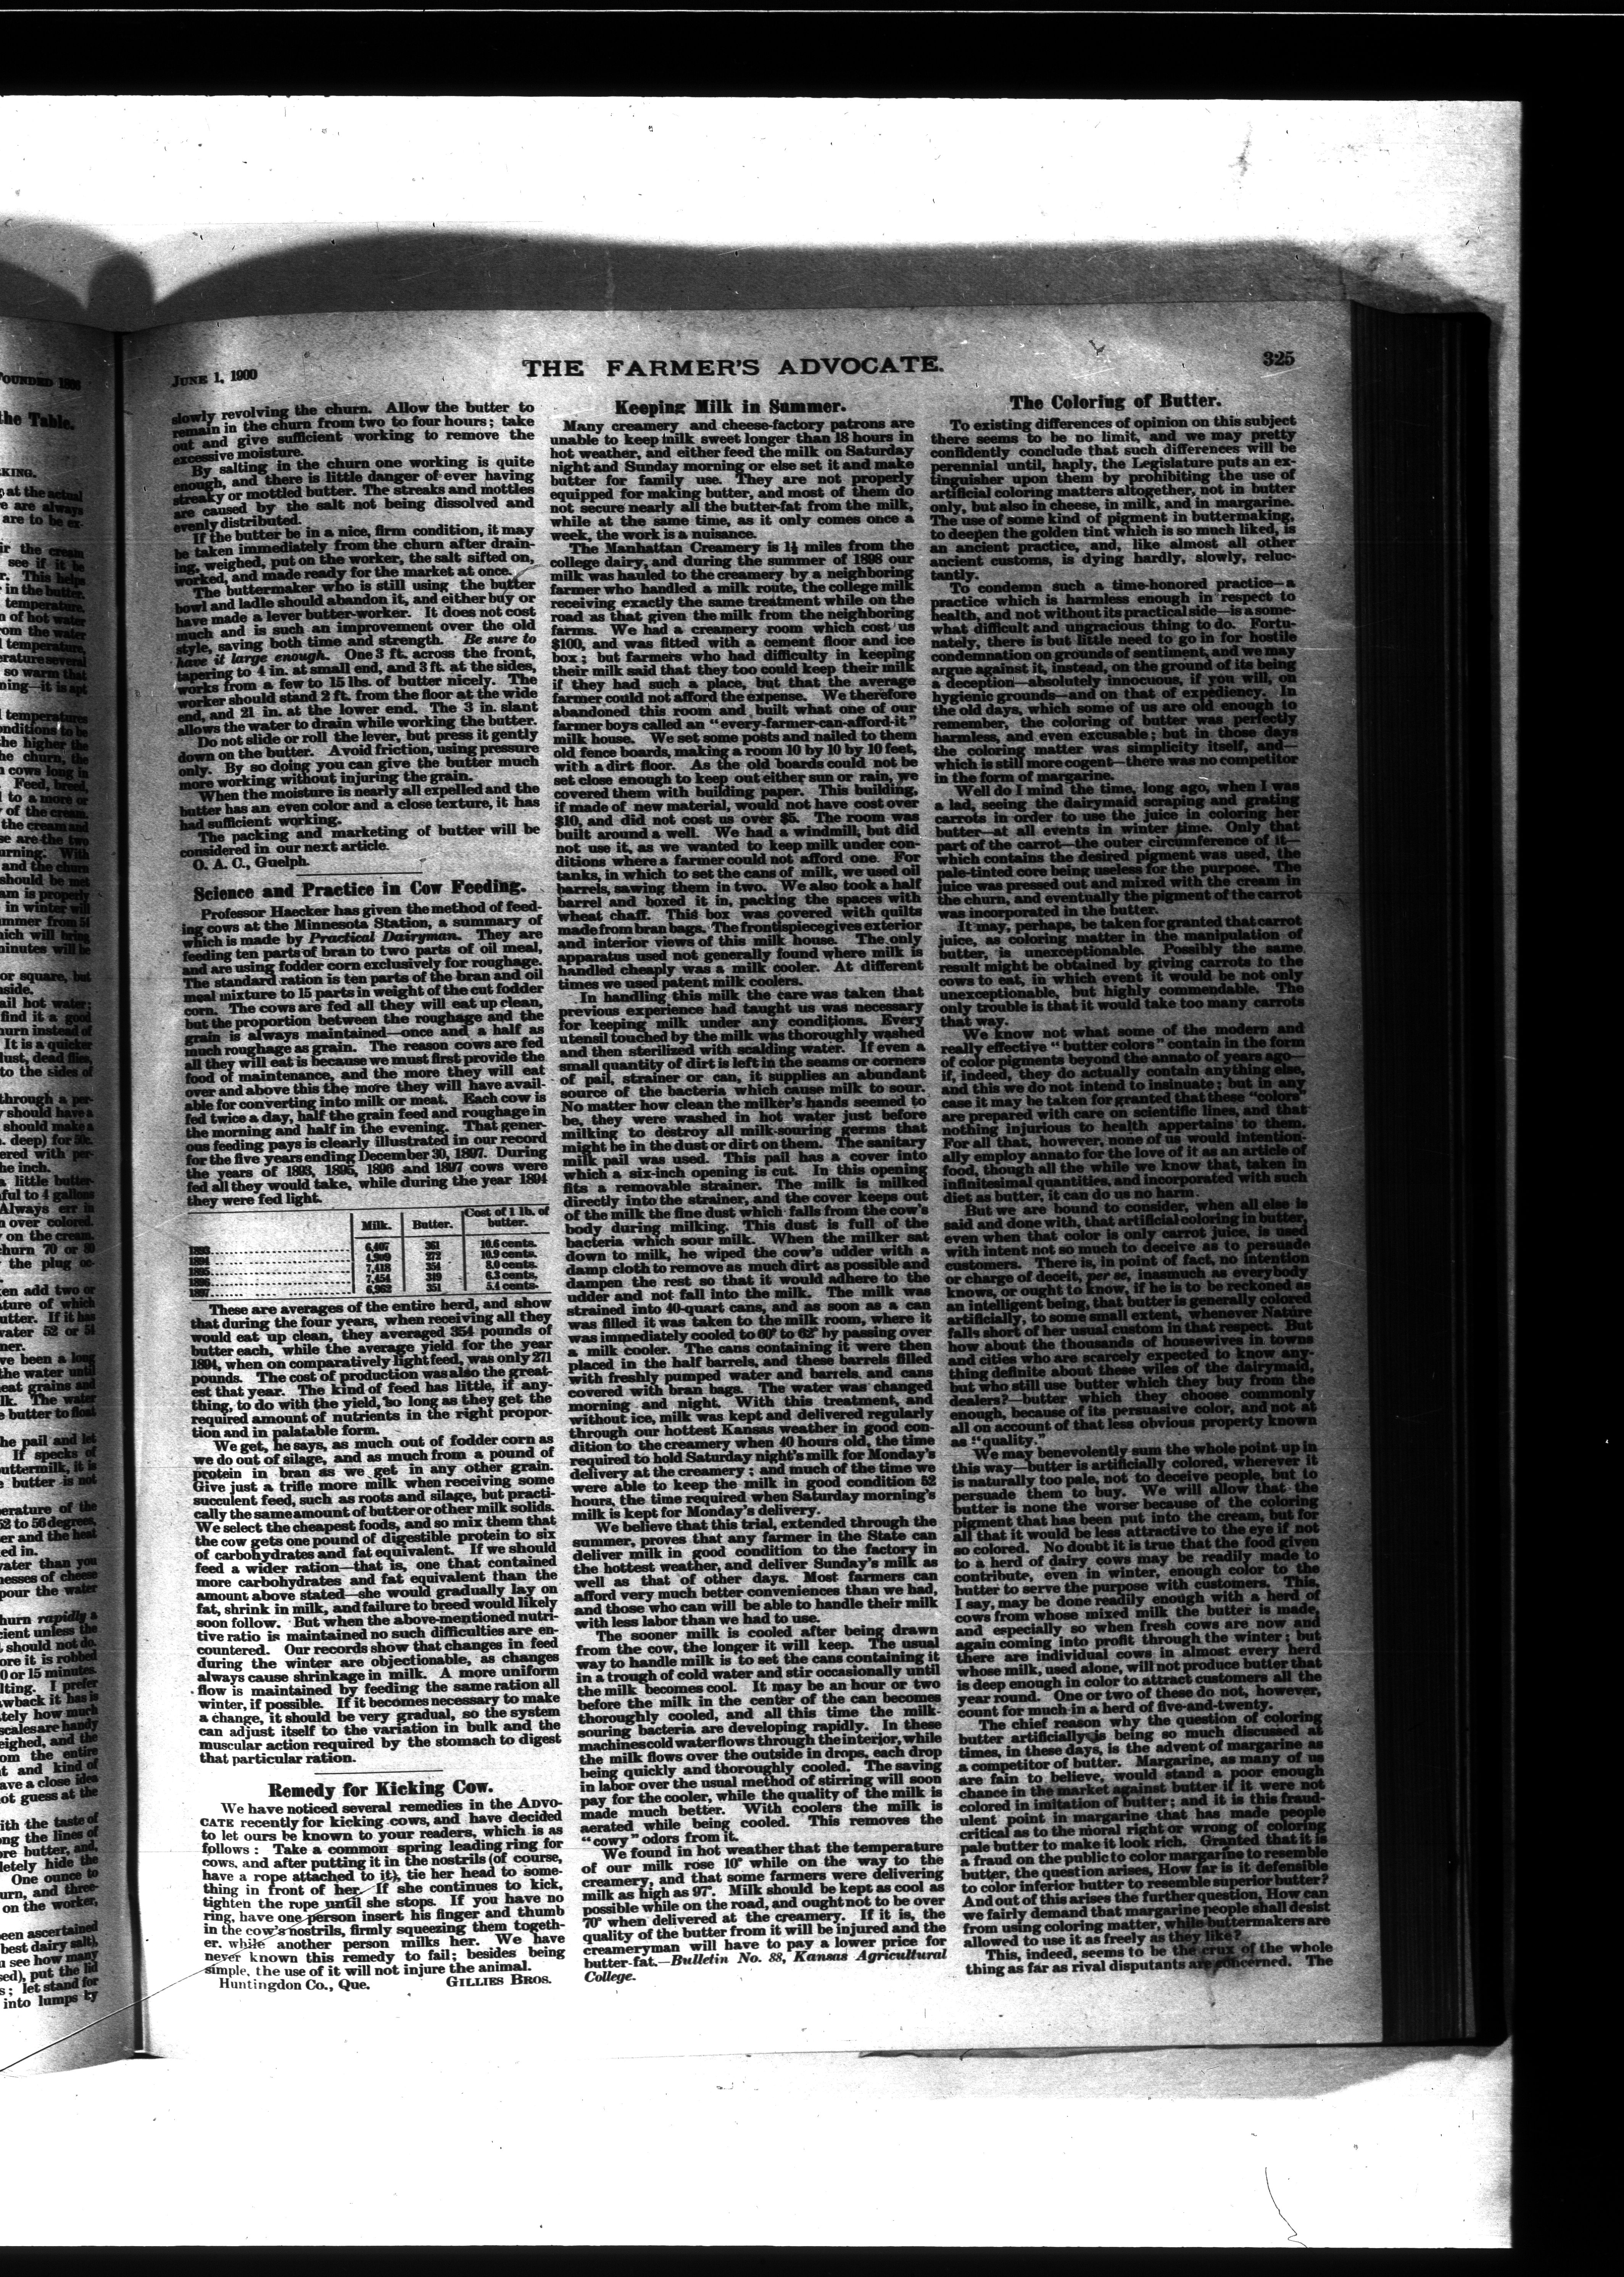 JUNE 1, 1900
THE FARMER'S ADVOCATE.
325
slowly revolving the churn. Allow the butter to
remain in the churn from two to four hours; take
out and give sufficient working to remove the
excessive moisture.
By salting in the churn one working is quite
enough, and there is little danger of ever having
streaky or mottled butter. The streaks and mottles
are caused by the salt not being dissolved and
evenly distributed.
If the butter be in a nice, firm condition, it may
be taken immediately from the churn after drain-
ing, weighed, put on the worker, the salt sifted on,
worked, and made ready for the market at once.
The buttermaker who is still using the butter
bowl and ladle should abandon it, and either buy or
have made a lever butter-worker. It does not cost
much and is such an improvement over the old
style, saving both time and strength. Be sure to
have it large enough. One 3 ft. across the front,
tapering to 4 in. at small end, and 3 ft. at the sides,
works from a few to 15 lbs. of butter nicely. The
worker should stand 2 ft. from the floor at the wide
end, and 21 in. at the lower end. The 3 in. slant
allows the water to drain while working the butter.
Do not slide or roll the lever, but press it gently
down on the butter. Avoid friction, using pressure
only. By so doing you can give the butter much
more working without injuring the grain.
When the moisture is nearly all expelled and the
butter has an even color and a close texture, it has
had sufficient working.
The packing and marketing of butter will be
considered in our next article.
O. A. C., Guelph.
Science and Practice in Cow Feeding.
Professor Haecker has given the method of feed-
ing cows at the Minnesota Station, a summary of
which is made by Practical Dairyman. They are
feeding ten parts of bran to two parts of oil meal,
and are using fodder corn exclusively for roughage.
The standard ration is ten parts of the bran and oil
meal mixture to 15 parts in weight of the cut fodder
corn. The cows are fed all they will eat up clean,
but the proportion between the roughage and the
grain is always maintained—once and a half as
much roughage as grain. The reason cows are fed
all they will eat is because we must first provide the
food of maintenance, and the more they will eat
over and above this the more they will have avail-
able for converting into milk or meat. Each cow is
fed twice a day, half the grain feed and roughage in
the morning and half in the evening. That gener-
ous feeding pays is clearly illustrated in our record
for the five years ending December 30, 1897. During
the years of 1893, 1895, 1896 and 1897 cows were
fed all they would take, while during the year 1894
they were fed light.
Milk. Butter. Cost of 1 lb. of
butter.
1893 6,407 361 10.6 cents.
1894 4,909 272 10.9 cents.
1895 7,418 354 8.0 cents.
1896 7,454 349 6.3 cents.
1897 6,962 351 5.4 cents.
These are averages of the entire herd, and show
that during the four years, when receiving all they
would eat up clean, they averaged 354 pounds of
butter each, while the average yield for the year
1894, when on comparatively light feed, was only 271
pounds. The cost of production was also the great-
est that year. The kind of feed has little, if any-
thing, to do with the yield, so long as they get the
required amount of nutrients in the right propor-
tion and in palatable form.
We get, he says, as much out of fodder corn as
we do out of silage, and as much from a pound of
protein in bran as we get in any other grain.
Give just a trifle more milk when receiving some
succulent feed, such as roots and silage, but practi-
cally the same amount of butter or other milk solids.
We select the cheapest foods, and so mix them that
the cow gets one pound of digestible protein to six
of carbohydrates and fat equivalent. If we should
feed a wider ration—that is, one that contained
more carbohydrates and fat equivalent than the
amount above stated—she would gradually lay on
fat, shrink in milk, and failure to breed would likely
soon follow. But when the above-mentioned nutri-
tive ratio is maintained no such difficulties are en-
countered. Our records show that changes in feed
during the winter are objectionable, as changes
always cause shrinkage in milk. A more uniform
flow is maintained by feeding the same ration all
winter, if possible. If it becomes necessary to make
a change, it should be very gradual, so the system
can adjust itself to the variation in bulk and the
muscular action required by the stomach to digest
that particular ration.
Remedy for Kicking Cow.
We have noticed several remedies in the ADVO-
CATE recently for kicking cows, and have decided
to let ours be known to your readers, which is as
follows: Take a common spring leading ring for
cows, and after putting it in the nostrils (of course,
have a rope attached to it), tie her head to some-
thing in front of her. If she continues to kick,
tighten the rope until she stops. If you have no
ring, have one person insert his finger and thumb
in the cow's nostrils, firmly squeezing them togeth-
er, while another person milks her. We have
never known this remedy to fail; besides being
simple, the use of it will not injure the animal.
Huntingdon Co., Que. GILLIES BROS.
Keeping Milk in Summer.
Many creamery and cheese-factory patrons are
unable to keep milk sweet longer than 18 hours in
hot weather, and either feed the milk on Saturday
night and Sunday morning or else set it and make
butter for family use. They are not properly
equipped for making butter, and most of them do
not secure nearly all the butter-fat from the milk,
while at the same time, as it only comes once a
week, the work is a nuisance.
The Manhattan Creamery is 1½ miles from the
college dairy, and during the summer of 1898 our
milk was hauled to the creamery by a neighboring
farmer who handled a milk route, the college milk
receiving exactly the same treatment while on the
road as that given the milk from the neighboring
farms. We had a creamery room which cost us
$100, and was fitted with a cement floor and ice
box; but farmers who had difficulty in keeping
their milk said that they too could keep their milk
if they had such a place, but that the average
farmer could not afford the expense. We therefore
abandoned this room and built what one of our
farmer boys called an "every-farmer-can-afford-it"
milk house. We set some posts and nailed to them
old fence boards, making a room 10 by 10 by 10 feet,
with a dirt floor. As the old boards could not be
set close enough to keep out either sun or rain, we
covered them with building paper. This building,
if made of new material, would not have cost over
$10, and did not cost us over $5. The room was
built around a well. We had a windmill, but did
not use it, as we wanted to keep milk under con-
ditions where a farmer could not afford one. For
tanks, in which to set the cans of milk, we used oil
barrels, sawing them in two. We also took a half
barrel and boxed it in, packing the spaces with
wheat chaff. This box was covered with quilts
made from bran bags. The frontispiece gives exterior
and interior views of this milk house. The only
apparatus used not generally found where milk is
handled cheaply was a milk cooler. At different
times we used patent milk coolers.
In handling this milk the care was taken that
previous experience had taught us was necessary
for keeping milk under any conditions. Every
utensil touched by the milk was thoroughly washed
and then sterilized with scalding water. If even a
small quantity of dirt is left in the seams or corners
of pail, strainer or can, it supplies an abundant
source of the bacteria which cause milk to sour.
No matter how clean the milker's hands seemed to
be, they were washed in hot water just before
milking to destroy all milk-souring germs that
might be in the dust or dirt on them. The sanitary
milk pail was used. This pail has a cover into
which a six-inch opening is cut. In this opening
fits a removable strainer. The milk is milked
directly into the strainer, and the cover keeps out
of the milk the fine dust which falls from the cow's
body during milking. This dust is full of the
bacteria which sour milk. When the milker sat
down to milk, he wiped the cow's udder with a
damp cloth to remove as much dirt as possible and
dampen the rest so that it would adhere to the
udder and not fall into the milk. The milk was
strained into 40-quart cans, and as soon as a can
was filled it was taken to the milk room, where it
was immediately cooled to 60° to 62° by passing over
a milk cooler. The cans containing it were then
placed in the half barrels, and these barrels filled
with freshly pumped water and barrels and cans
covered with bran bags. The water was changed
morning and night. With this treatment, and
without ice, milk was kept and delivered regularly
through our hottest Kansas weather in good con-
dition to the creamery when 40 hours old, the time
required to hold Saturday night's milk for Monday's
delivery at the creamery; and much of the time we
were able to keep the milk in good condition 52
hours, the time required when Saturday morning's
milk is kept for Monday's delivery.
We believe that this trial, extended through the
summer, proves that any farmer in the State can
deliver milk in good condition to the factory in
the hottest weather, and deliver Sunday's milk as
well as that of other days. Most farmers can
afford very much better conveniences than we had,
and those who can will be able to handle their milk
with less labor than we had to use.
The sooner milk is cooled after being drawn
from the cow, the longer it will keep. The usual
way to handle milk is to set the cans containing it
in a trough of cold water and stir occasionally until
the milk becomes cool. It may be an hour or two
before the milk in the center of the can becomes
thoroughly cooled, and all this time the milk-
souring bacteria are developing rapidly. In these
machines cold water flows through the interior, while
the milk flows over the outside in drops, each drop
being quickly and thoroughly cooled. The saving
in labor over the usual method of stirring will soon
pay for the cooler, while the quality of the milk is
made much better. With coolers the milk is
aerated while being cooled. This removes the
"cowy" odors from it.
We found in hot weather that the temperature
of our milk rose 10° while on the way to the
creamery, and that some farmers were delivering
milk as high as 97°. Milk should be kept as cool as
possible while on the road, and ought not to be over
70° when delivered at the creamery. If it is, the
quality of the butter from it will be injured and the
creameryman will have to pay a lower price for
butter-fat.—Bulletin No. 88, Kansas Agricultural
College.
The Coloring of Butter.
To existing differences of opinion on this subject
there seems to be no limit, and we may pretty
confidently conclude that such differences will be
perennial until, haply, the Legislature puts an ex-
tinguisher upon them by prohibiting the use of
artificial coloring matters altogether, not in butter
only, but also in cheese, in milk, and in margarine.
The use of some kind of pigment in buttermaking,
to deepen the golden tint which is so much liked, is
an ancient practice, and, like almost all other
ancient customs, is dying hardly, slowly, reluc-
tantly.
To condemn such a time-honored practice—a
practice which is harmless enough in respect to
health, and not without its practical side—is a some-
what difficult and ungracious thing to do. Fortu-
nately, there is but little need to go in for hostile
condemnation on grounds of sentiment, and we may
argue against it, instead, on the ground of its being
a deception—absolutely innocuous, if you will, on
hygienic grounds—and on that of expediency. In
the old days, which some of us are old enough to
remember, the coloring of butter was perfectly
harmless, and even excusable; but in those days
the coloring matter was simplicity itself, and—
which is still more cogent—there was no competitor
in the form of margarine.
Well do I mind the time, long ago, when I was
a lad, seeing the dairymaid scraping and grating
carrots in order to use the juice in coloring her
butter—at all events in winter time. Only that
part of the carrot—the outer circumference of it—
which contains the desired pigment was used, the
pale-tinted core being useless for the purpose. The
juice was pressed out and mixed with the cream in
the churn, and eventually the pigment of the carrot
was incorporated in the butter.
It may, perhaps, be taken for granted that carrot
juice, as coloring matter in the manipulation of
butter, is unexceptionable. Possibly the same
result might be obtained by giving carrots to the
cows to eat, in which event it would be not only
unexceptionable, but highly commendable. The
only trouble is that it would take too many carrots
that way.
We know not what some of the modern and
really effective "butter colors" contain in the form
of color pigments beyond the annato of years ago—
if, indeed, they do actually contain anything else,
and this we do not intend to insinuate; but in any
case it may be taken for granted that these "colors"
are prepared with care on scientific lines, and that
nothing injurious to health appertains to them.
For all that, however, none of us would intention-
ally employ annato for the love of it as an article of
food, though all the while we know that, taken in
infinitesimal quantities, and incorporated with such
diet as butter, it can do us no harm.
But we are bound to consider, when all else is
said and done with, that artificial coloring in butter,
even when that color is only carrot juice, is used
with intent not so much to deceive as to persuade
customers. There is, in point of fact, no intention
or charge of deceit, per se, inasmuch as everybody
knows, or ought to know, if he is to be reckoned as
an intelligent being, that butter is generally colored
artificially, to some small extent, whenever Nature
falls short of her usual custom in that respect. But
how about the thousands of housewives in towns
and cities who are scarcely expected to know any-
thing definite about these wiles of the dairymaid,
but who still use butter which they buy from the
dealers?—butter which they choose commonly
enough, because of its persuasive color, and not at
all on account of that less obvious property known
as "quality."
We may benevolently sum the whole point up in
this way—butter is artificially colored, wherever it
is naturally too pale, not to deceive people, but to
persuade them to buy. We will allow that the
butter is none the worse because of the coloring
pigment that has been put into the cream, but for
all that it would be less attractive to the eye if not
so colored. No doubt it is true that the food given
to a herd of dairy cows may be readily made to
contribute, even in winter, enough color to the
butter to serve the purpose with customers. This,
I say, may be done readily enough with a herd of
cows from whose mixed milk the butter is made,
and especially so when fresh cows are now and
again coming into profit through the winter; but
there are individual cows in almost every herd
whose milk, used alone, will not produce butter that
is deep enough in color to attract customers all the
year round. One or two of these do not, however,
count for much in a herd of five-and-twenty.
The chief reason why the question of coloring
butter artificially is being so much discussed at
times, in these days, is the advent of margarine as
a competitor of butter. Margarine, as many of us
are fain to believe, would stand a poor enough
chance in the market against butter if it were not
colored in imitation of butter; and it is this fraud-
ulent point in margarine that has made people
critical as to the moral right or wrong of coloring
pale butter to make it look rich. Granted that it is
a fraud on the public to color margarine to resemble
butter, the question arises, How far is it defensible
to color inferior butter to resemble superior butter?
And out of this arises the further question, How can
we fairly demand that margarine people shall desist
from using coloring matter, while buttermakers are
allowed to use it as freely as they like?
This, indeed, seems to be the crux of the whole
thing as far as rival disputants are concerned. The